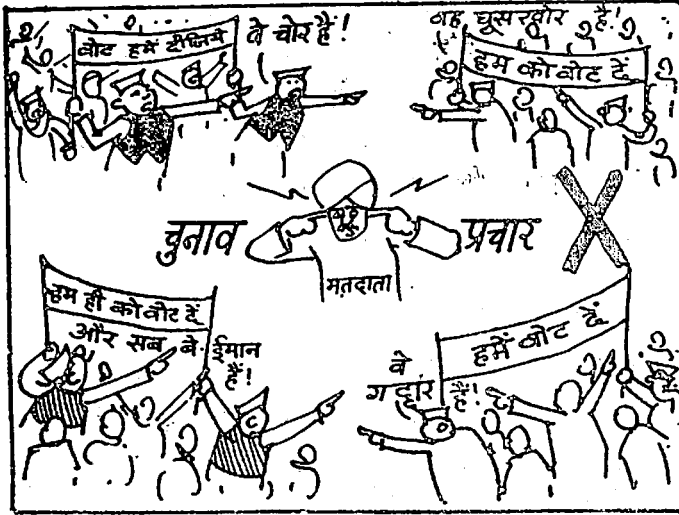 वोट हमें दीजिये
वे चोर हैं!
वह घूसखोर है!
हम को वोट दें
चुनाव
प्रचार
मतदाता
हम ही को वोट दें
और सब बे-ईमान
हैं!
हमें वोट दें
वे
गद्दार हैं!